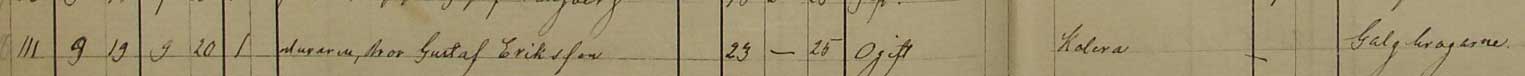 111 9 19 9 20 1 Muraren, Nor Gustaf Eriksson 23 — 25 Ogift Kolera — Galgbrogarne.